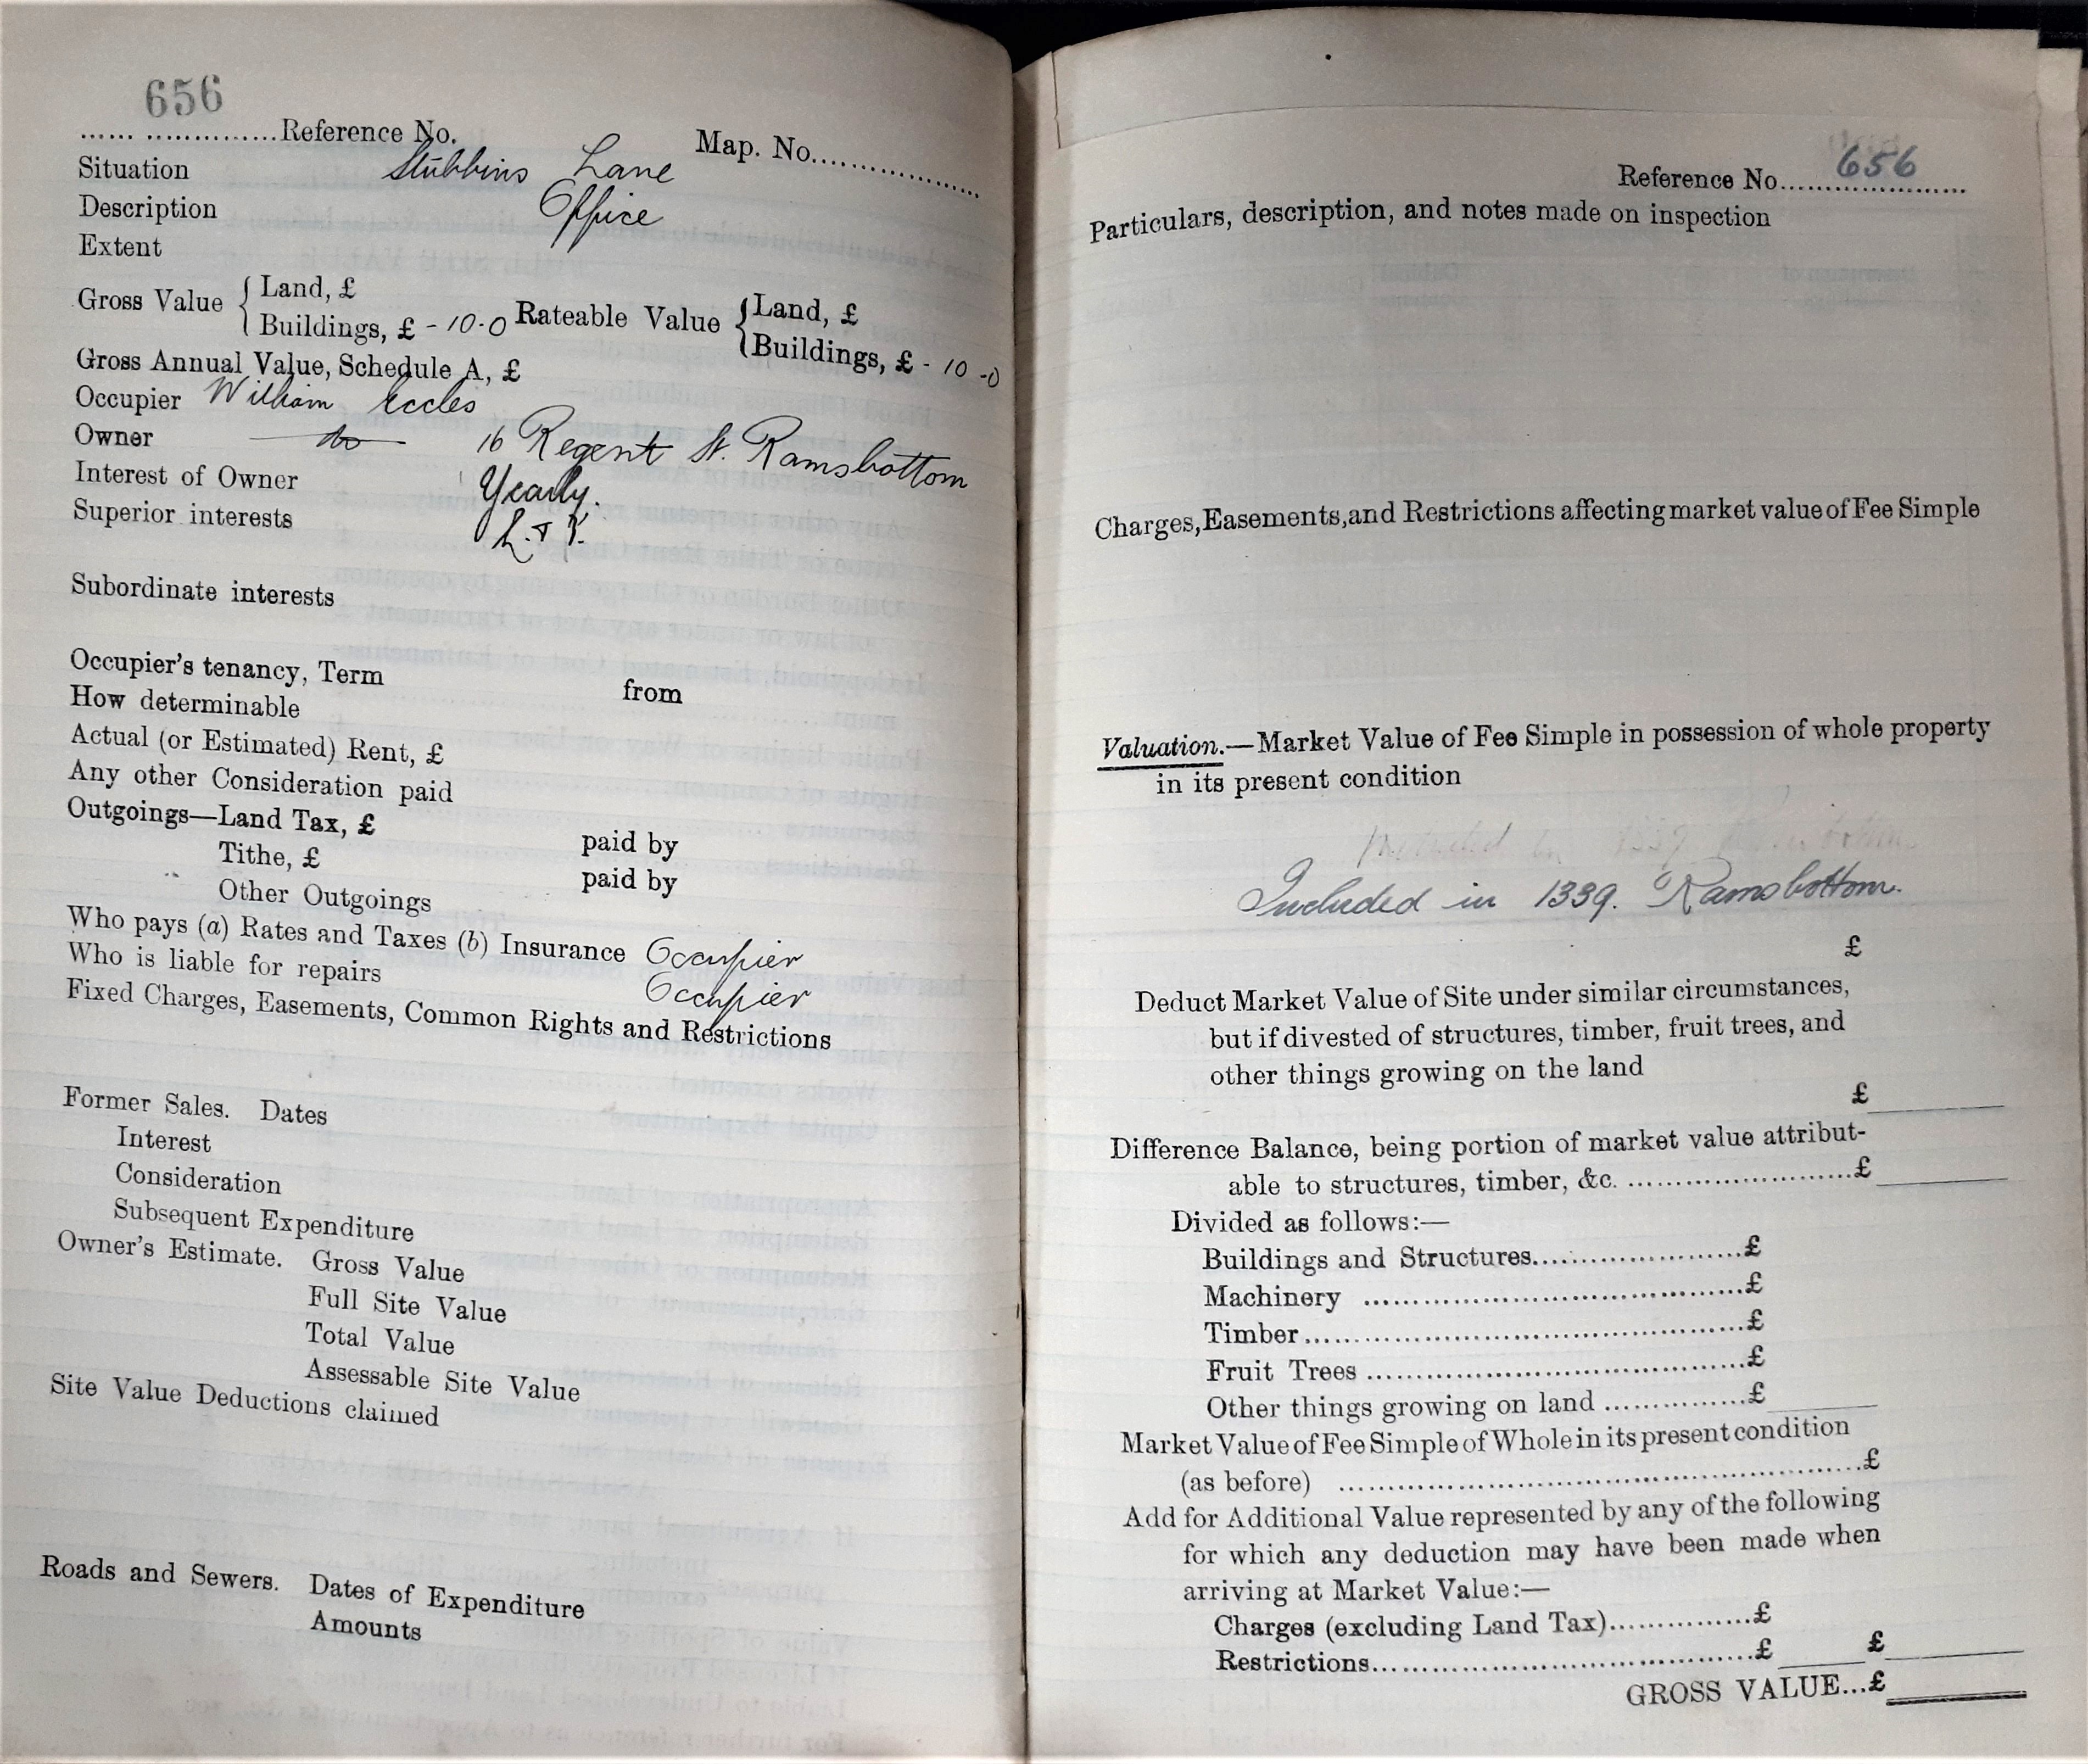 656
...... ..............Reference No. Map. No...................
Situation Stubbins Lane
Description Office
Extent
Gross Value { Land, £
Buildings, £ - 10-0 Rateable Value { Land, £
Buildings, £ - 10 -0
Gross Annual Value, Schedule A, £
Occupier William Eccles
Owner do 16 Regent St. Ramsbottom
Interest of Owner Yearly.
Superior interests
Subordinate interests
Occupier's tenancy, Term from
How determinable
Actual (or Estimated) Rent, £
Any other Consideration paid
Outgoings—Land Tax, £ paid by
Tithe, £ paid by
Other Outgoings
Who pays (a) Rates and Taxes (b) Insurance Occupier
Who is liable for repairs Occupier
Fixed Charges, Easements, Common Rights and Restrictions
Former Sales. Dates
Interest
Consideration
Subsequent Expenditure
Owner's Estimate. Gross Value
Full Site Value
Total Value
Assessable Site Value
Site Value Deductions claimed
Roads and Sewers. Dates of Expenditure
Amounts
Reference No. 656
Particulars, description, and notes made on inspection
Charges, Easements, and Restrictions affecting market value of Fee Simple
Valuation.—Market Value of Fee Simple in possession of whole property
in its present condition
Included in 1339. Ramsbottom.
£
Deduct Market Value of Site under similar circumstances,
but if divested of structures, timber, fruit trees, and
other things growing on the land
£
Difference Balance, being portion of market value attribut-
able to structures, timber, &c. ........................£
Divided as follows:—
Buildings and Structures......................£
Machinery .......................................£
Timber.............................................£
Fruit Trees .......................................£
Other things growing on land ..............£
Market Value of Fee Simple of Whole in its present condition
(as before) .......................................................£
Add for Additional Value represented by any of the following
for which any deduction may have been made when
arriving at Market Value:—
Charges (excluding Land Tax)...............£
Restrictions.......................................£ £
GROSS VALUE...£